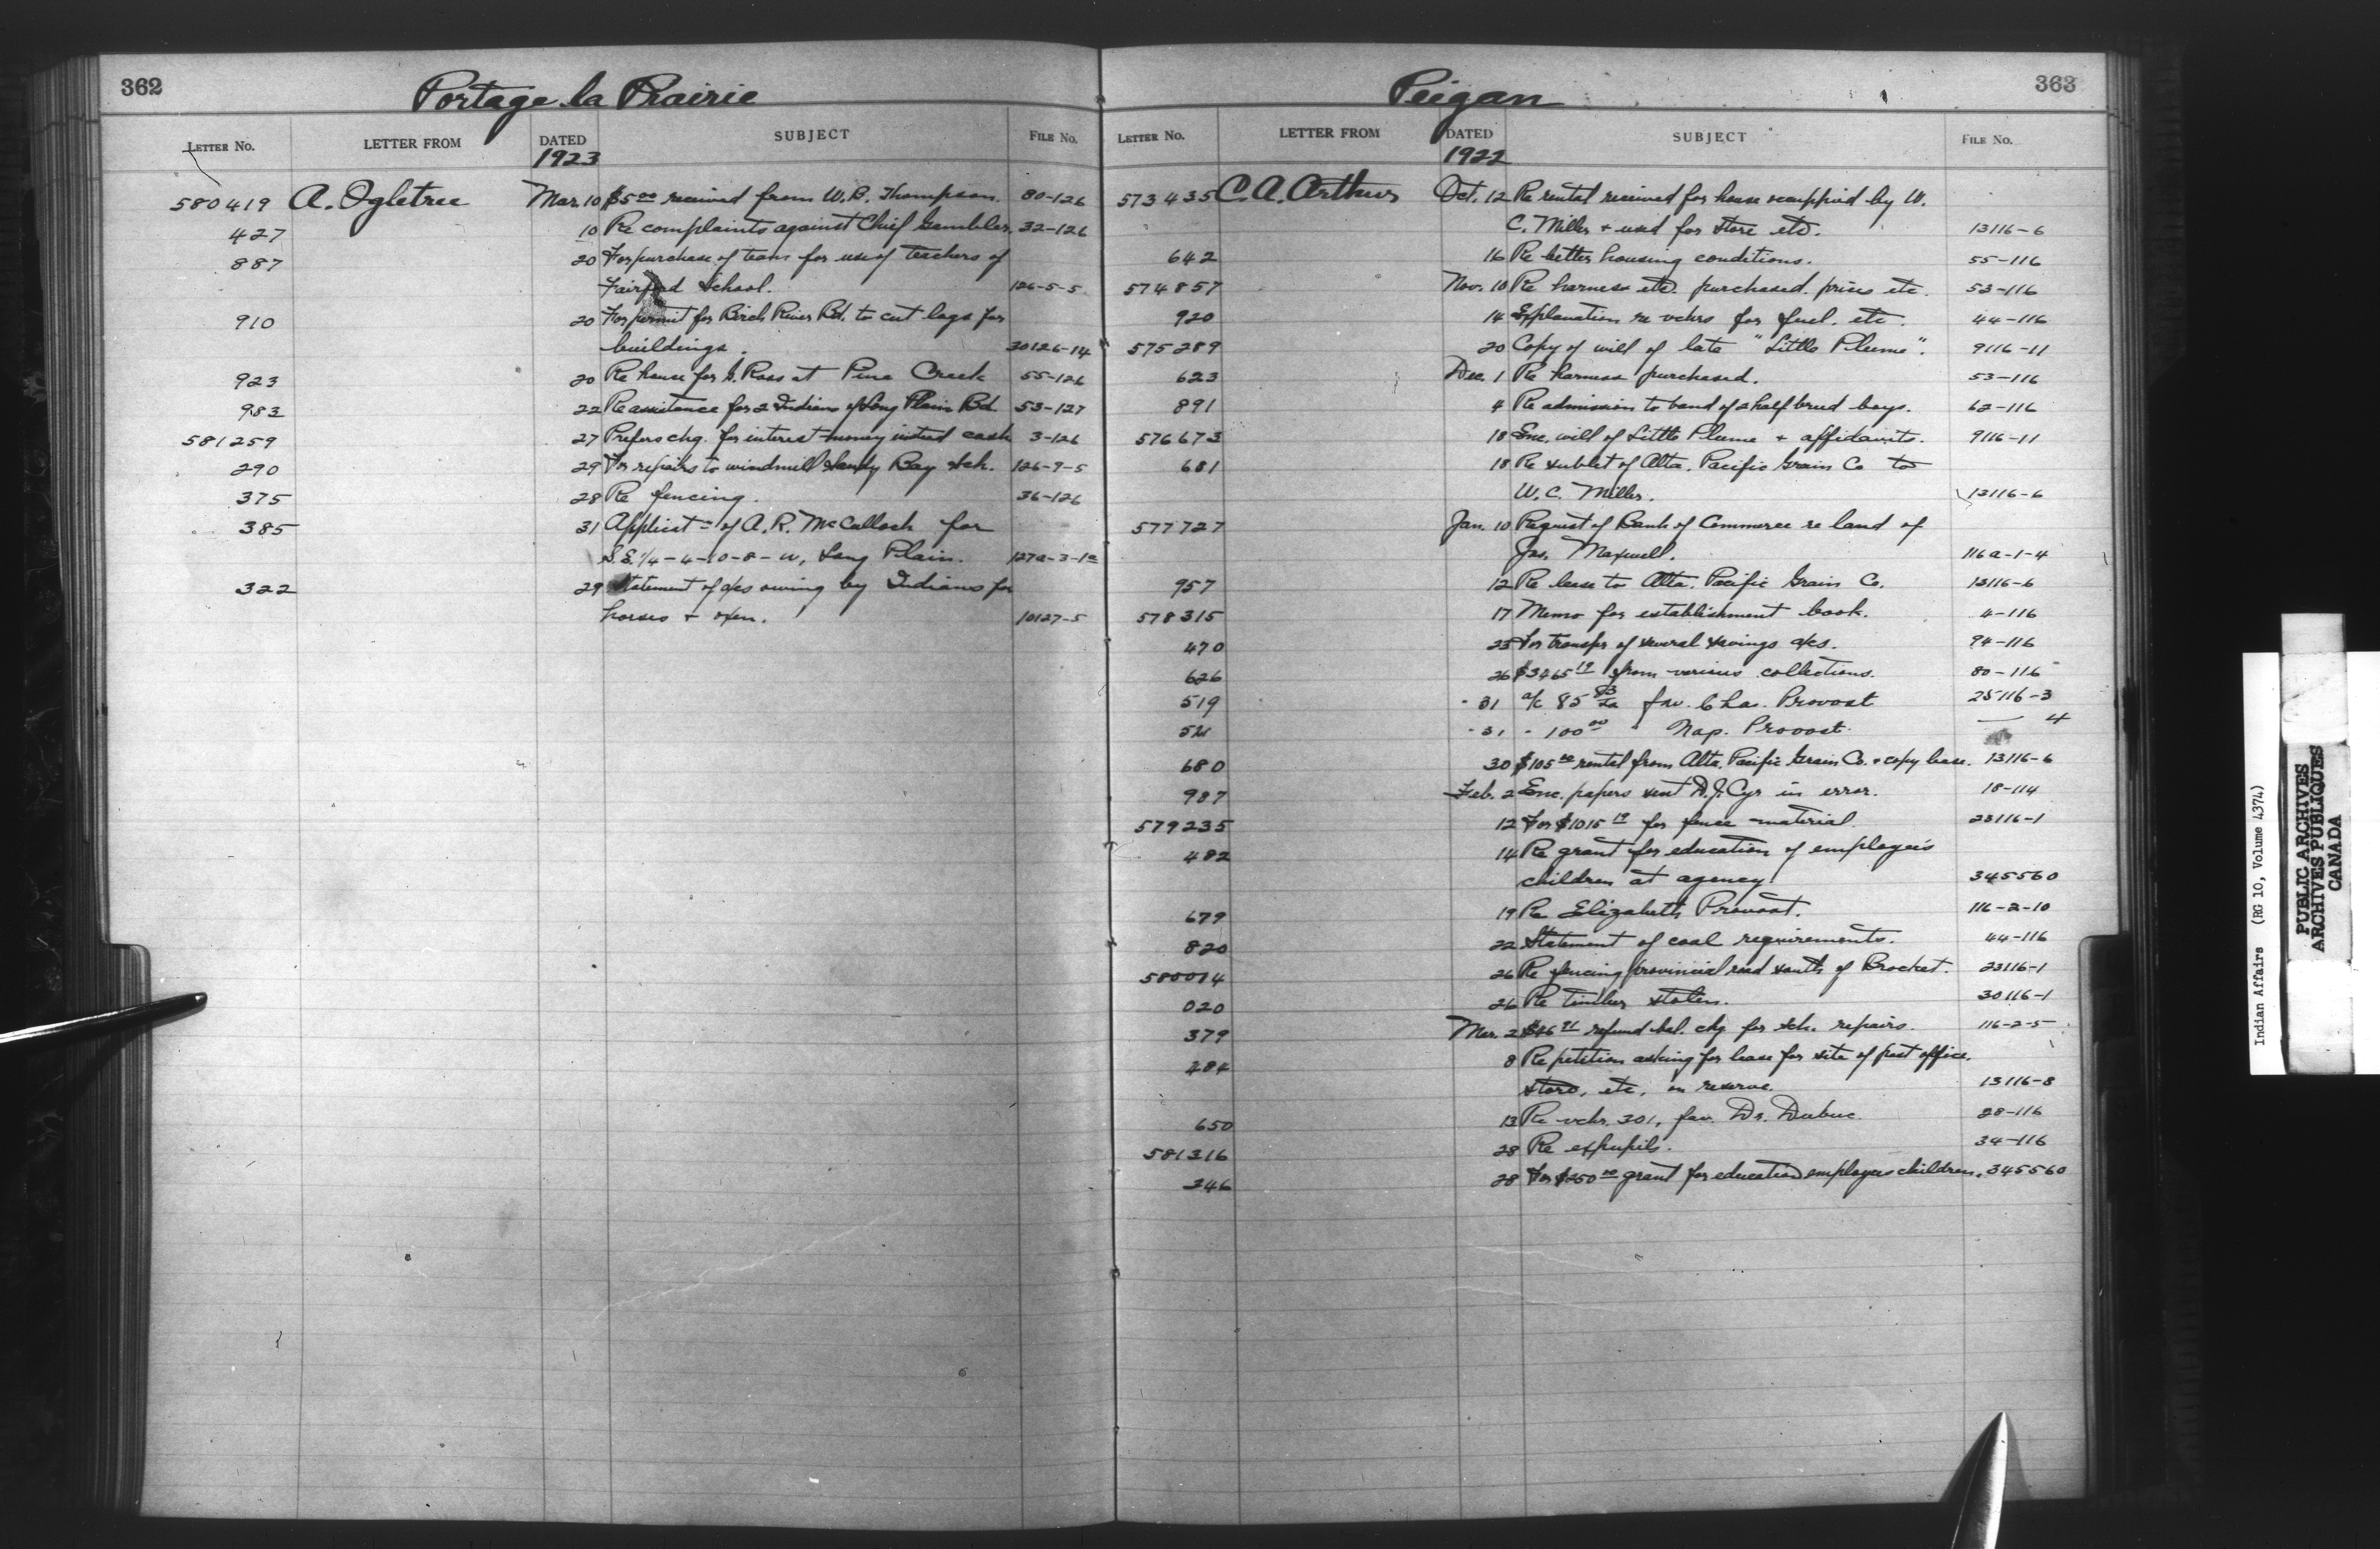 362
Portage la Prairie
LETTER NO. LETTER FROM DATED SUBJECT FILE No.
1923
580419 A. Ogletree Mar. 10 $5.00 received from W. B. Thompson. 80-126
427 10 Re complaints against Chief Gambler. 32-126
887 20 For purchase of team for use of teachers of
Fairford School. 126-5-5
910 20 For permit for Birch River Bd. to cut logs for
buildings. 30126-14
923 20 Re house for G. Ross at Pine Creek 55-126
983 22 Re assistance for 2 Indians of Long Plain Bd. 53-127
581259 27 Prefers chq. for interest money instead cash 3-126
290 29 For repairs to windmill Sandy Bay Sch. 126-9-5
375 28 Re fencing. 36-126
385 31 Applicatn of A. R. McCulloch for
S.E. 1/4-4-10-8-W, Long Plain. 127a-3-1a
322 29 Statement of a/cs owing by Indians for
horses + oxen. 10127-5
363
Peigan
LETTER No. LETTER FROM DATED SUBJECT FILE No.
1922
573435 C. A. Arthur Oct. 12 Re rental received for house occuppied by W.
C. Miller + used for store etc. 13116-6
642 16 Re better housing conditions. 55-116
574857 Nov. 10 Re harness etc. purchased. prices etc. 53-116
920 14 Explanation re vchrs for fuel. etc. 44-116
575289 20 Copy of will of late "Little Plume". 9116-11
623 Dec. 1 Re harness purchased. 53-116
891 4 Re admission to band of 2 half breed boys. 62-116
576673 18 Enc. will of Little Plume + affidavits. 9116-11
681 18 Re sublet of Alta. Pacific Grain Co to
W. C. Miller. 13116-6
577727 Jan. 10 Request of Bank of Commerce re land of
Jas. Maxwell. 116a-1-4
957 12 Re lease to Alta. Pacific Grain Co. 13116-6
578315 17 Memo for establishment book. 4-116
470 23 For transfer of several savings a/cs. 94-116
626 26 $3465.19 from various collections. 80-116
519 - 31 a/c 85 fav. Chas. Provost 25116-3
521 - 31 - 100.00 " Nap. Provost. — 4
680 30 $105.00 rental from Alta. Pacific Grain Co. + copy lease. 13116-6
987 Feb. 2 Enc. papers sent D. J. Cyr in error. 18-114
579235 12 For $1015.19 for fence material. 23116-1
482 14 Re grant for education of employee's
children at agency 345560
679 19 Re Elizabeth Provost. 116-2-10
820 22 Statement of coal requirements. 44-116
580014 26 Re fencing provincial road south of Brocket. 23116-1
020 26 Re timber stolen. 30116-1
379 Mar. 2 refund bal. chq for sch. repairs. 116-2-5
484 8 Re petition asking for lease for site of post office,
store, etc, on reserve. 13116-8
650 13 Re vchr. 301, fav. Dr. Dubuc. 28-116
581216 28 Re expupils. 34-116
246 28 For $250.00 grant for education employees children. 345560
Indian Affairs (RG 10, Volume 4374)
PUBLIC ARCHIVES
ARCHIVES PUBLIQUES
CANADA